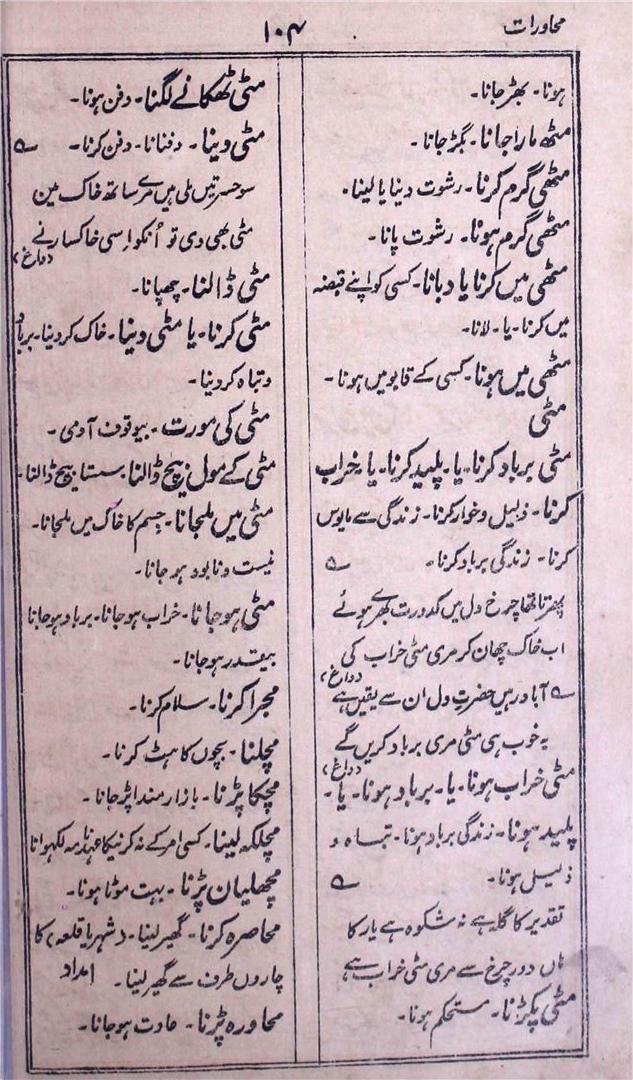 محاورات
۱۰۴
ہونا۔ بھڑ جانا۔
مٹھ مارا جانا۔ بگڑ جانا۔
مٹھی گرم کرنا۔ رشوت دینا یا لینا۔
مٹھی گرم ہونا۔ رشوت پانا۔
مٹھی میں کرنا یا دبانا۔ کسی کو اپنے قبضہ
میں کرنا۔ یا۔ لانا۔
مٹھی میں ہونا۔ کسی کے قابو میں ہونا۔
مٹی
مٹی برباد کرنا۔ یا۔ پلید کرنا۔ یا۔ خراب
کرنا۔ ذلیل و خوار کرنا۔ زندگی سے مایوس
کرنا۔ زندگی برباد کرنا۔ ؎
پھرتا تھا چرخ دل میں کدورت بھرے ہوئے
اب خاک چھان کر مری مٹی خراب کی
(داغ)
؎ آباد رہیں حضرتِ دل ان سے یقیں ہے
یہ خوب ہی مٹی مری برباد کریں گے
(داغ)
مٹی خراب ہونا۔ یا۔ برباد ہونا۔ یا۔
پلید ہونا۔ زندگی برباد ہونا۔ تباہ و
ذلیل ہونا۔ ؎
تقدیر کا گلہ ہے نہ شکوہ ہے یار کا
ہاں دور چرخ سے مری مٹی خراب ہے
مٹی پکڑنا۔ مستحکم ہونا۔
مٹی ٹھکانے لگنا۔ دفن ہونا۔
مٹی دینا۔ دفنانا۔ دفن کرنا۔ ؎
سو حسرتیں ملی ہیں مرے ساتھ خاک مین
مٹی بھی دی تو اُنکو اِسی خاکسار نے
(داغ)
مٹی ڈالنا۔ چھپانا۔
مٹی کرنا۔ یا مٹی دینا۔ خاک کر دینا۔ برباد
و تباہ کر دینا۔
مٹی کی مورت۔ بیوقوف آدمی۔
مٹی کے مول بیچ ڈالنا۔ سستا بیچ ڈالنا۔
مٹی میں ملجانا۔ جسم کا خاک میں ملجانا۔
نیست و نابود ہو جانا۔
مٹی ہو جانا۔ خراب ہو جانا۔ برباد ہو جانا
بیقدر ہو جانا۔
مجرا کرنا۔ سلام کرنا۔
مچلنا۔ بچوں کا ہٹ کرنا۔
مچکا پڑنا۔ بازار مندا پڑ جانا۔
مچلکہ لینا۔ کسی امر کے نہ کرنیکا عہدنامہ لکھوانا
مچھلیان پڑنا۔ بہت موٹا ہونا۔
محاصرہ کرنا۔ گھیر لینا۔ (شہر یا قلعہ) کا
چاروں طرف سے گھیر لینا۔ امداد
محاورہ پڑنا۔ عادت ہو جانا۔